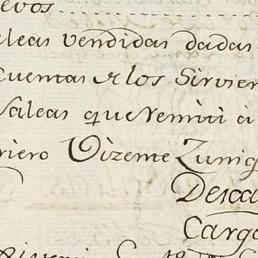 evos
aleas vendidas dadas
Cuentas & los Sirvien
Saleas que Remiti a
riero Vizente Zunig
Desca
Cargo